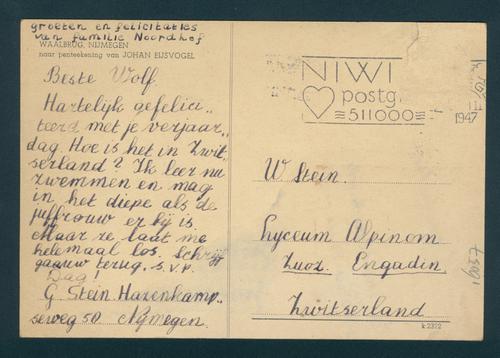 groeten en felicitaties
van familie Noordhof
WAALBRUG, NIJMEGEN
naar penteekening van JOHAN EIJSVOGEL
Beste Wolf.
Hartelijk gefelici„
teerd met je verjaar„
dag. Hoe is het in Zwit„
serland? Ik leer nu
zwemmen en mag
in het diepe als de
juffrouw er bij is.
Maar ze laat me
helemaal los. Schrijf
gaauw terug. s.v.p.
Dag!
G. Stein Hazenkamp„
seweg 50 Nijmegen.
NIWI
postg.
511000
1947
W Stein.
Lyceum Alpinom
Zuoz. Engadin
Zwitserland
k 2322